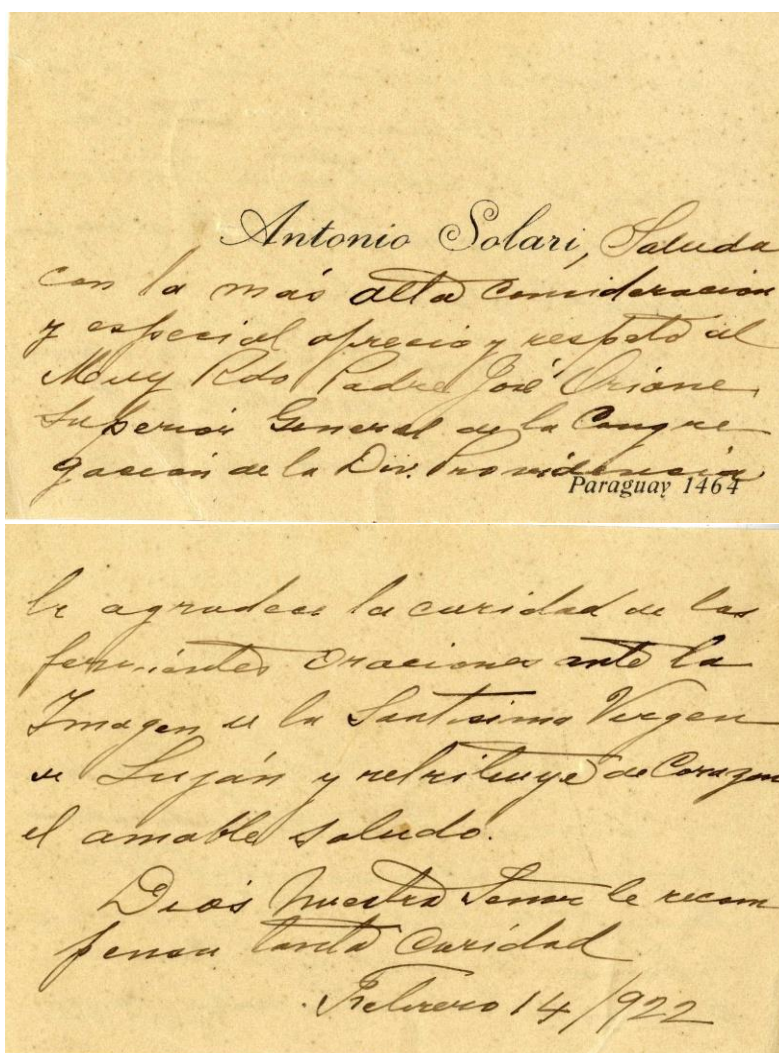 Antonio Solari, Saluda
con la más alta consideracion
y especial aprecio y respeto al
Muy Rdo Padre José Orione,
Superior General de la Congre
gacion de la Div. Providencia
Paraguay 1464
le agradece la caridad de las
fervientes oraciones ante la
Imagen de la Santisima Virgen
de Luján y retribuye de Corazon
el amable saludo.
Dios Nuestro Señor le recom
pense tanta Caridad
Febrero 14/922